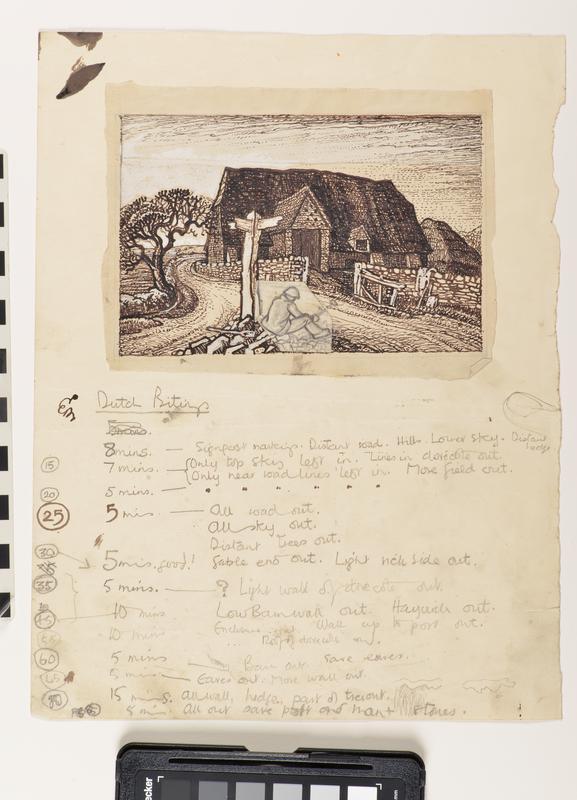 Dutch Biting
8 mins. — Signpost markings. Distant road. Hills. Lower sky. Distant
edge
15 7 mins. — Only top sky left in. Lines in dovecote out.
Only near road lines left in. More field out.
20 5 mins. — " " " " "
25 5 mins — All road out.
All sky out.
Distant Trees out.
30 5 mins. good! Gable end out. Light side out.
35 5 mins. — ? Light wall of dovecote out.
10 mins Low Barn wall out. Hayrick out.
10 mins Wall up to post out.
Roof of dovecote
60 5 mins — Barn out. Save eaves.
5 mins. Eaves out. More wall out.
15 mins. All wall, hedge, part of tree out.
8 All out save post and man + stones.
ecker